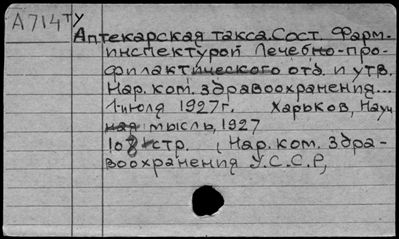 А714ту
Аптекарская такса. Сост. Фарм.
инспектурой Лечебно-про-
филактического отд. и утв.
Нар. ком. здравоохранения...
1-июля 1927г. Харьков, Науч
ная мысль, 1927
108 стр. (Нар. ком. здра-
воохранения У.С.С.Р,